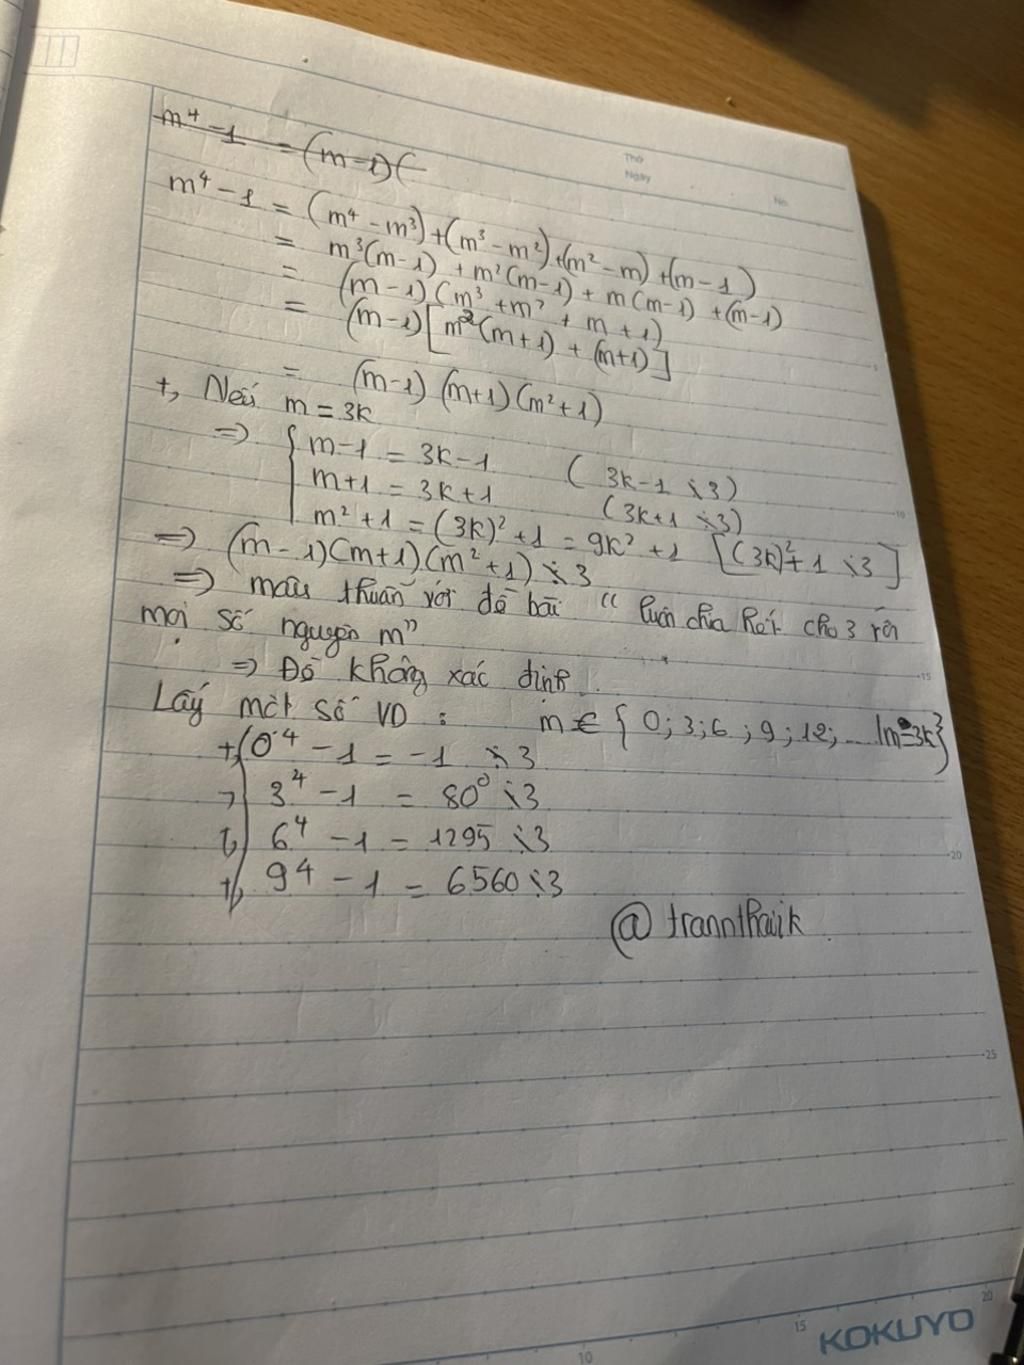 Thứ
Ngày
No.
m⁴ - 1 = (m-1)(
m⁴ - 1 = (m⁴ - m³) + (m³ - m²) + (m² - m) + (m - 1)
= m³(m-1) + m²(m-1) + m(m-1) + (m-1)
= (m-1)(m³ + m² + m + 1)
= (m-1)[m²(m+1) + (m+1)]
= (m-1)(m+1)(m²+1)
+, Nếu m = 3k
=> { m-1 = 3k-1 (3k-1 ⋮̸ 3)
m+1 = 3k+1 (3k+1 ⋮̸ 3)
m²+1 = (3k)²+1 = 9k²+1 [(3k)²+1 ⋮̸ 3]
=> (m-1)(m+1)(m²+1) ⋮̸ 3
=> mâu thuẫn với đề bài "luôn chia hết cho 3 với
mọi số nguyên m"
=> Đề không xác định.
Lấy một số VD : m ∈ {0; 3; 6; 9; 12; ... |m=3k}
+, 0⁴ - 1 = -1 ⋮̸ 3
3⁴ - 1 = 80 ⋮̸ 3
6⁴ - 1 = 1295 ⋮̸ 3
+, 9⁴ - 1 = 6560 ⋮̸ 3
@trannthaiik
5
10
15
20
25
10
15
20
KOKUYO